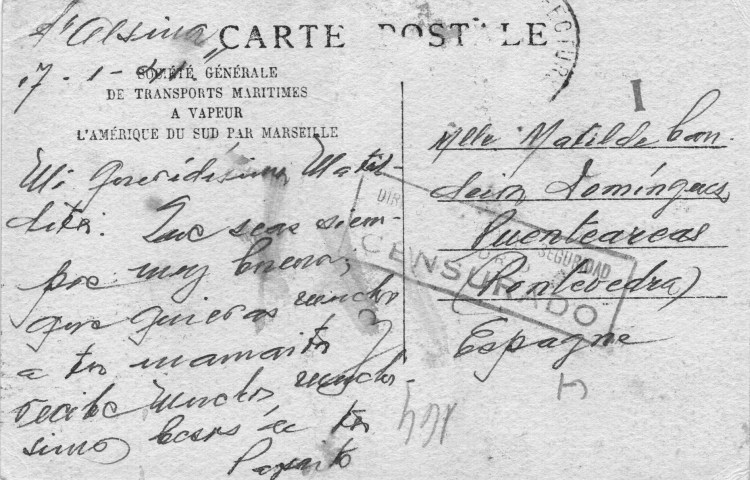 "Alsina"
CARTE POSTALE
17-1-
SOCIÉTÉ GÉNÉRALE
DE TRANSPORTS MARITIMES
A VAPEUR
L'AMÉRIQUE DU SUD PAR MARSEILLE
Mi queridísima Matil-
dita: Que seas siem-
pre muy buena;
que quieras mucho
a tu mamaita y
recibe muchos muchí-
simos besos de tu
Papaito
I
Mlle Matilde
Domíngues
Puenteareas
(Pontevedra)
Espagne
SEGURIDAD
CENSURADO